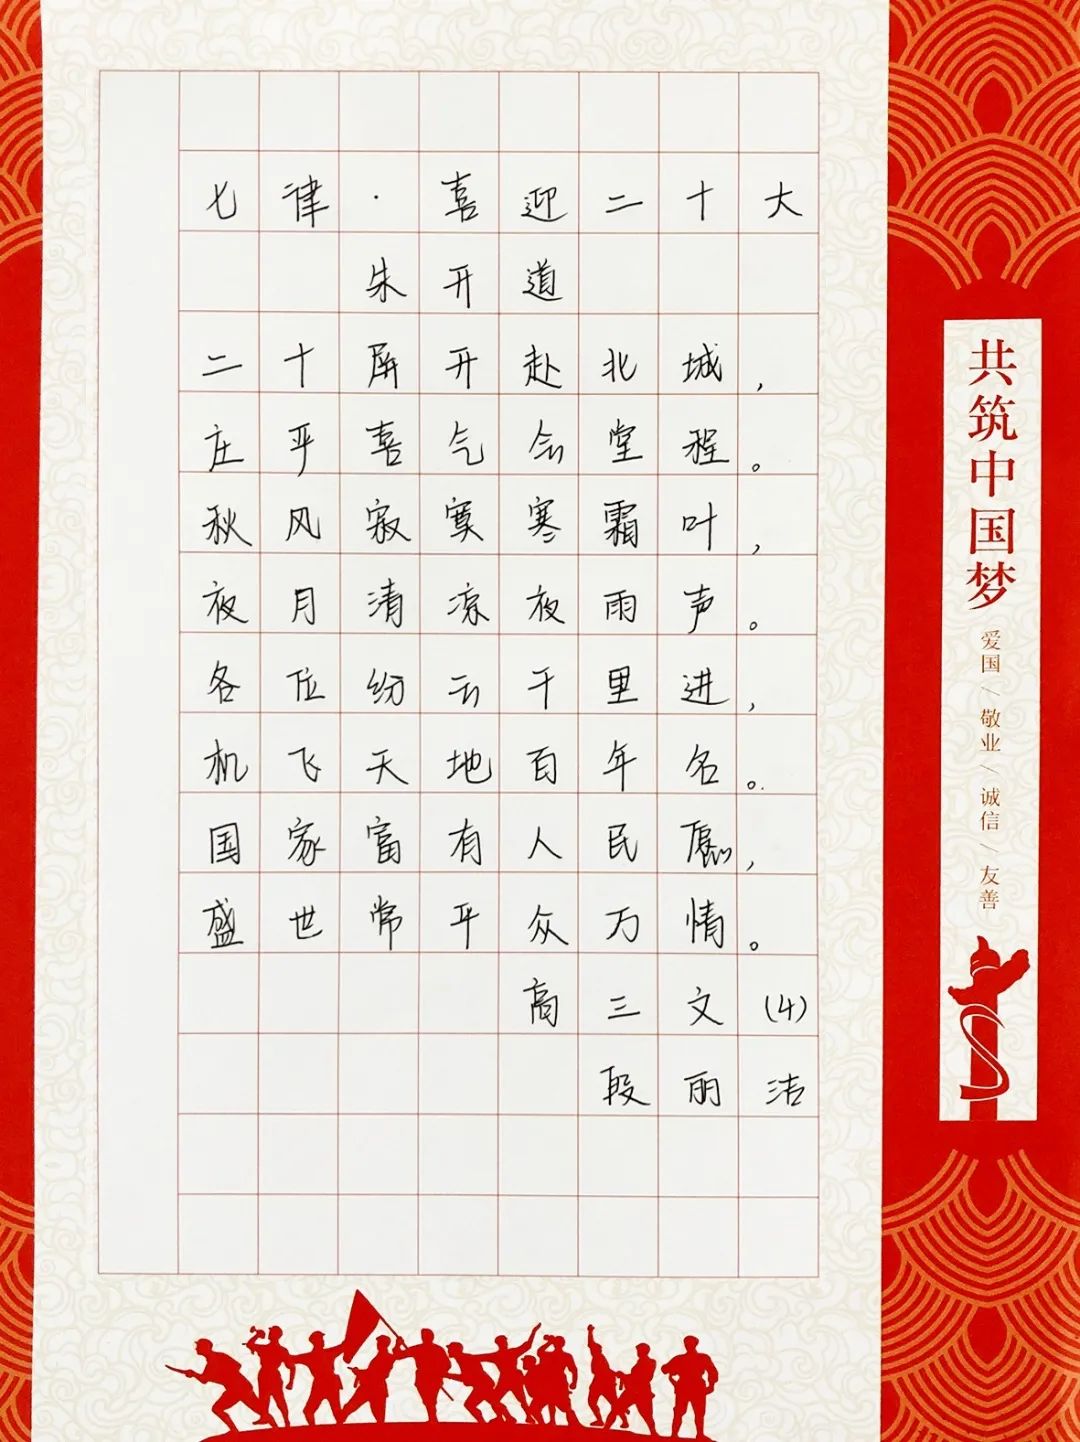 七律·喜迎二十大
朱开道
二十屏开赴北城，
庄平喜气会堂程。
秋风寂寞寒霜叶，
夜月清凉夜雨声。
各位纷云千里进，
机飞天地百年名。
国家富有人民愿，
盛世常平众万情。
高三文(4)
段丽洁
共筑中国梦
爱国/敬业/诚信/友善